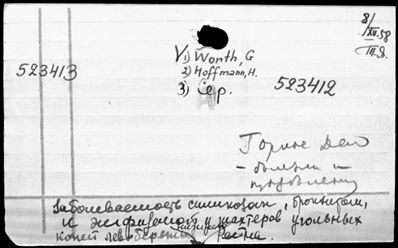 8/XII.58
1) Worth, G
2) Hoffmann, H.
3) Сер.
523413
523412
Горное Дело
Заболеваемость силикозом, бронхитом,
и эмфиземой у шахтеров угольных
копей левобережья Рейна.